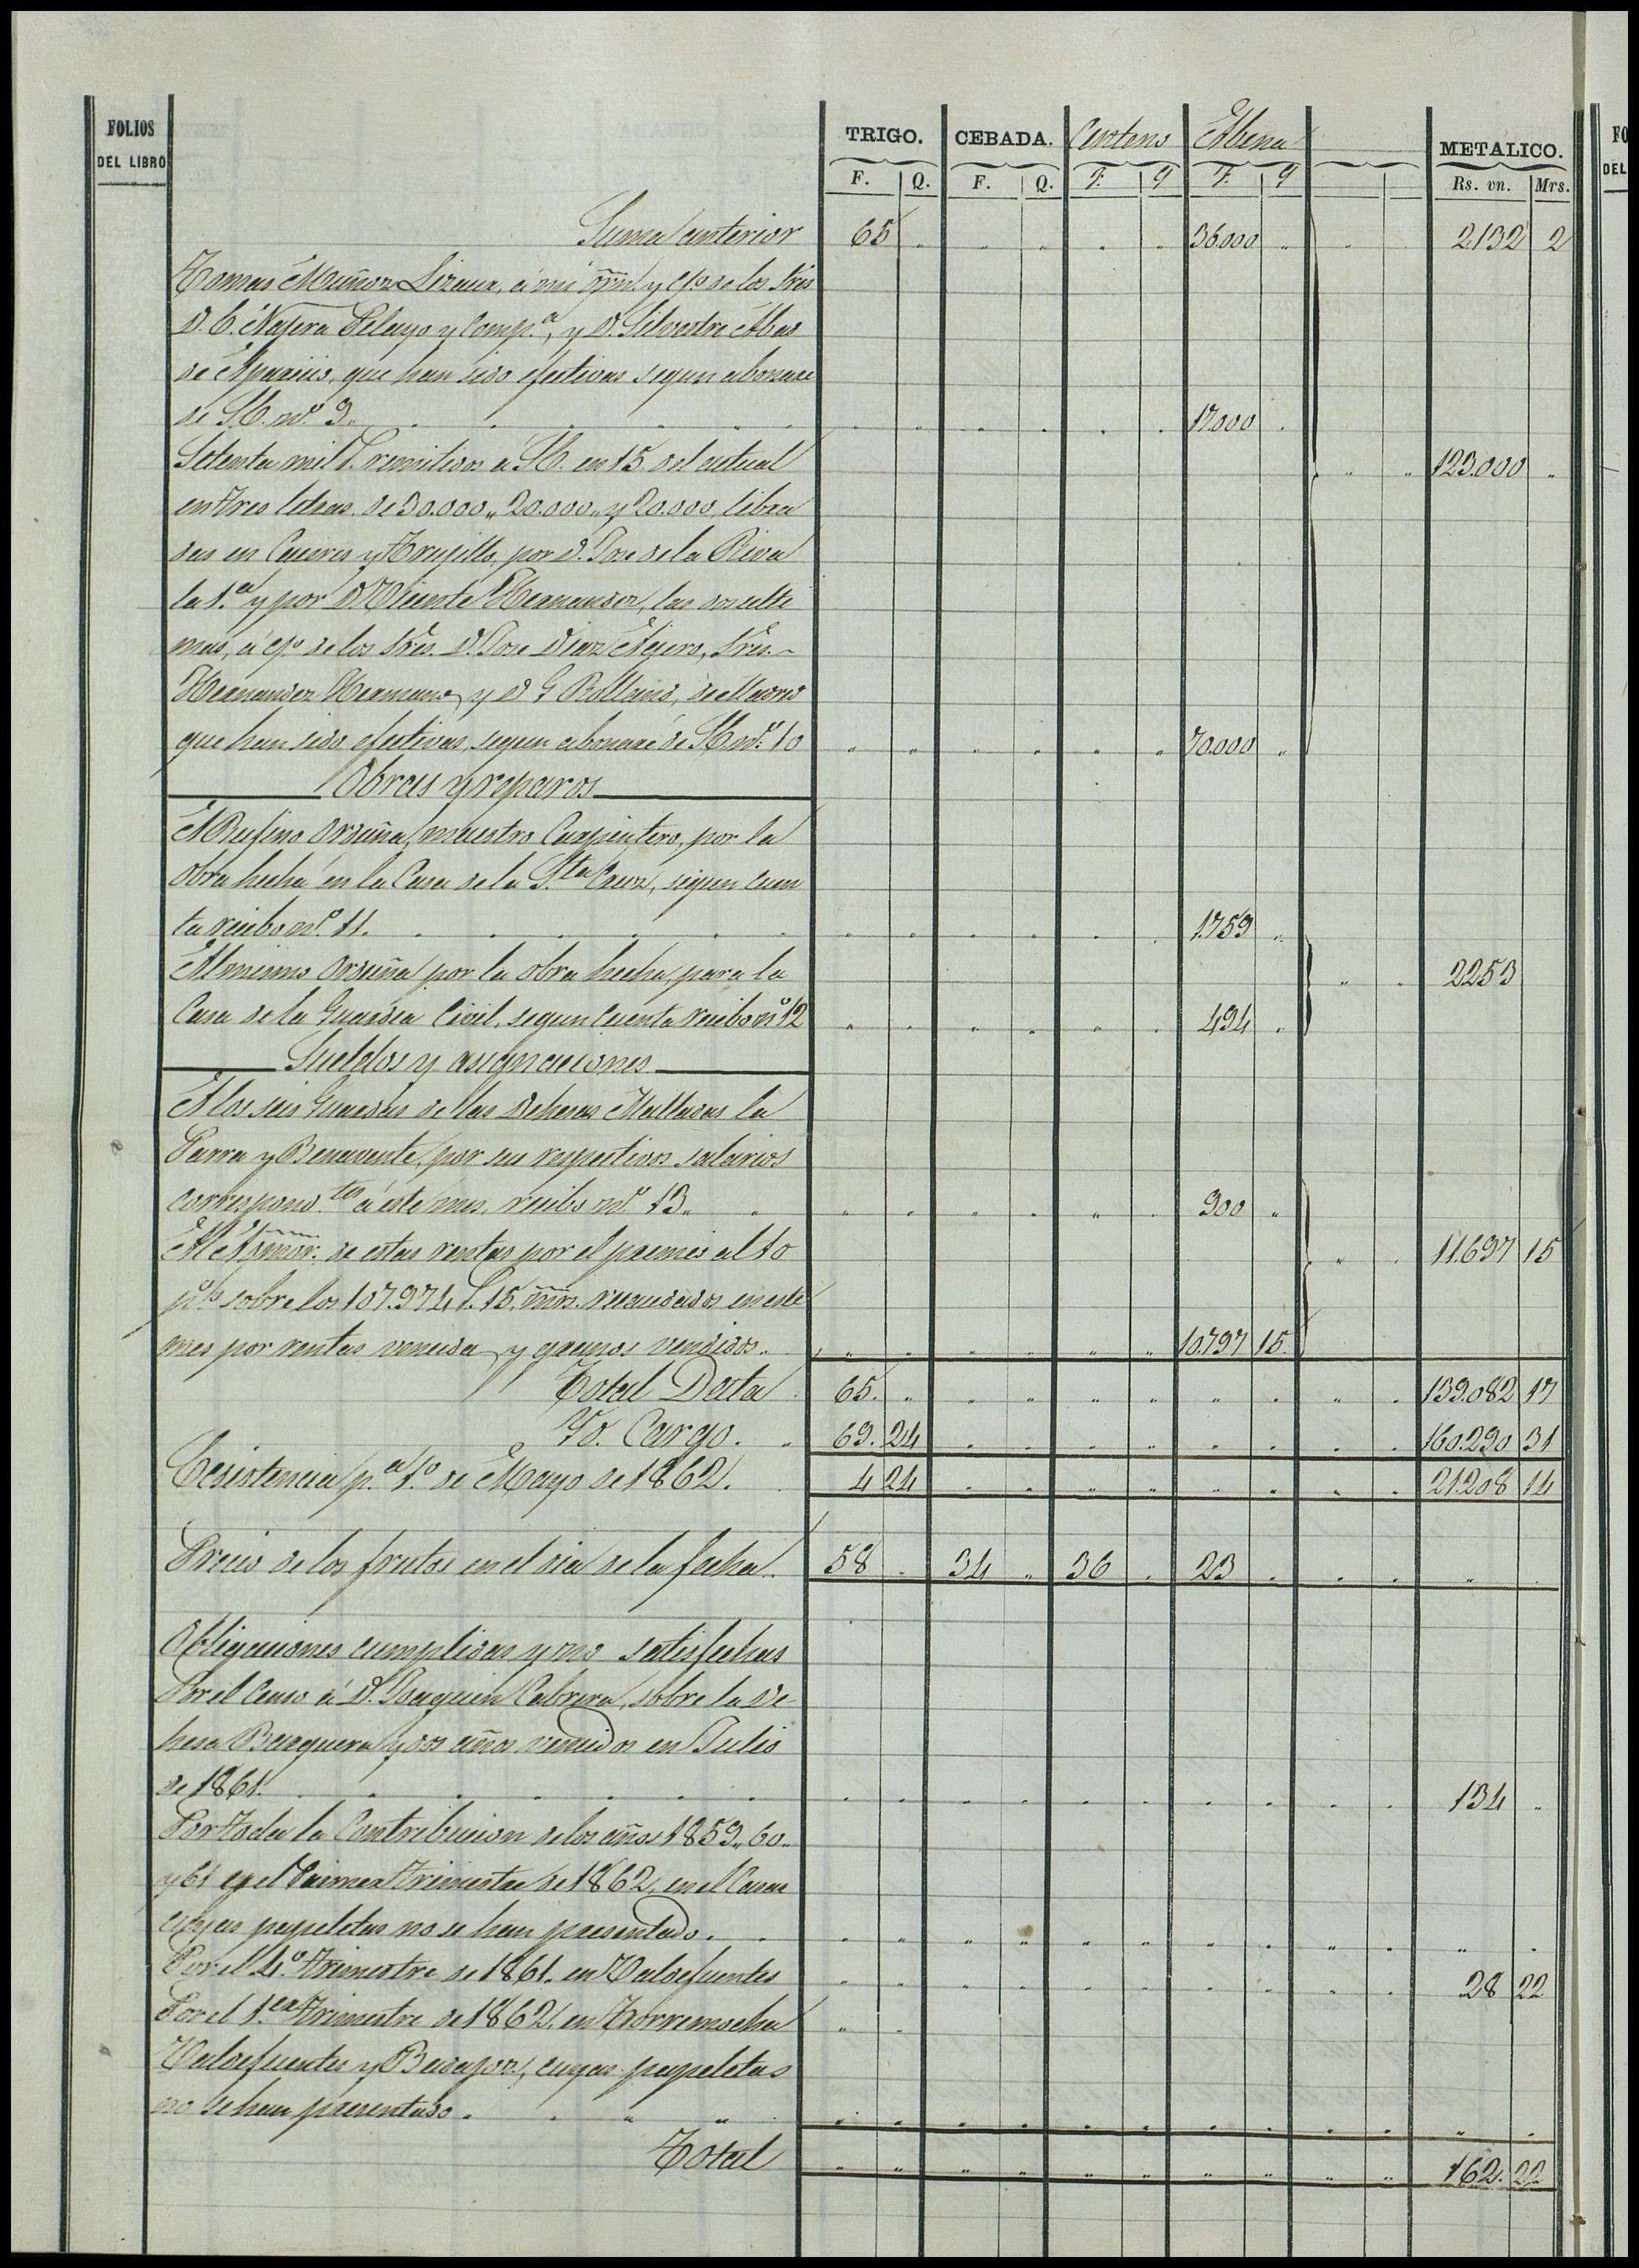 FOLIOS
DEL LIBRO
TRIGO. CEBADA. Centeno Abena METALICO.
F. Q. F. Q. F. Q F. Q Rs. vn. Mrs.
Suma anterior 65 " " " " " 36.000 " " " 2132 2
Tomas Muñoz á mi orñ. y c/o. de los Sres
D. C. Najera Pelayo y Comp.a, y D. Silvestre Abas
de Aparicio, que han sido efectivas segun abonare
de S.E. n.o 9. " " " " " " 17.000 "
Setenta mil r. remitidos a S.E. en 15 del actual " " 123.000 "
en tres letras de 30.000 " 20.000 " y 20.000, libra
das en Caceres y Trujillo, por D. Jose de la Riva
la 1.a y por D. Vicente Hernandez, las dos ulti
mas, á c/o. de los Sres. D. Jose Diaz Agero, Sres.
Hernandez Hermano, y D. G Rolland, de Madrid
que han sido efectivas, segun abonaré de S.E. n.o 10 " " " " " " 70.000 "
Obras y reparos
A Rufino Orduña, maestro Carpintero, por la
obra hecha en la Casa de la S.ta Cruz, segun cuen
ta recibo n.o 11. " " " " " " 1.759 "
Al mismo Orduña por la obra hecha, para la " " 2253
Casa de la Guardia Civil, segun cuenta recibo n.o 12 " " " " " " 494 "
Sueldos y asignaciones
A los seis Guardas de las Dehesas Malladas la
Parra y Benavente, por sus respectivos salarios
correspond.tes á este mes, recibo n.o 13. " " " " " " 900 "
Al Admor. de estas rentas por el premio al 10 " " 11.697 15
p% sobre los 107.974 r. 15 mrs. recaudados en este
mes por rentas vencidas y granos vendidos. " " " " " " 10.797 15
Total Data 65. " " " " " " " " " 139.082 17
Yd. Cargo. 69. 24 " " " " " " " " 160.290 31
Existencia p.a 1.o de Mayo de 1862. 4 24 " " " " " " " " 21.208 14
Precio de los frutos en el dia de la fecha. 58 " 34 " 36 " 23 " " " " "
Obligaciones cumplidas y no satisfechas
Por el Censo á D. Joaquin Cabrera, sobre la De-
hesa Baquera y dos años vencidos en Julio
de 1861. " " " " " " " " " " 134 "
Por toda la Contribucion de los años 1859 " 60 "
y 61 y el Primer trimestre de 1862, en el Casar
cuyas papeletas no se han presentado. " " " " " " " " " " " "
Por el 4.o trimestre de 1861. en Valdefuentes " " " " " " " " " " 28 22
Por el 1.er trimestre de 1862. en Torremocha " "
Valdefuentes y Badajoz, cuyas papeletas
no se han presentado. " " " " " " " " " " " "
Total " " " " " " " " " " 162. 22